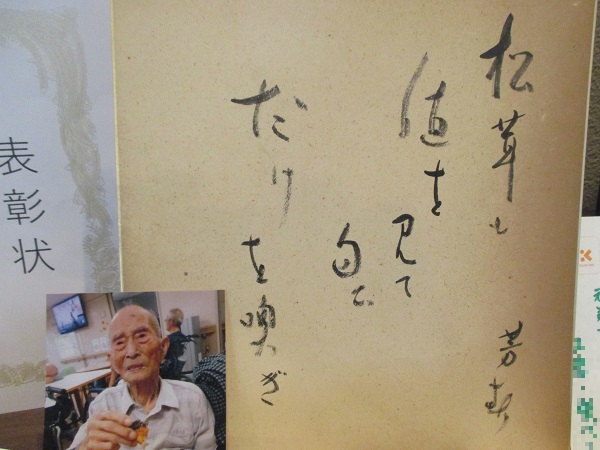 松茸も
値を見て
匂い
だけを嗅ぎ
表彰状